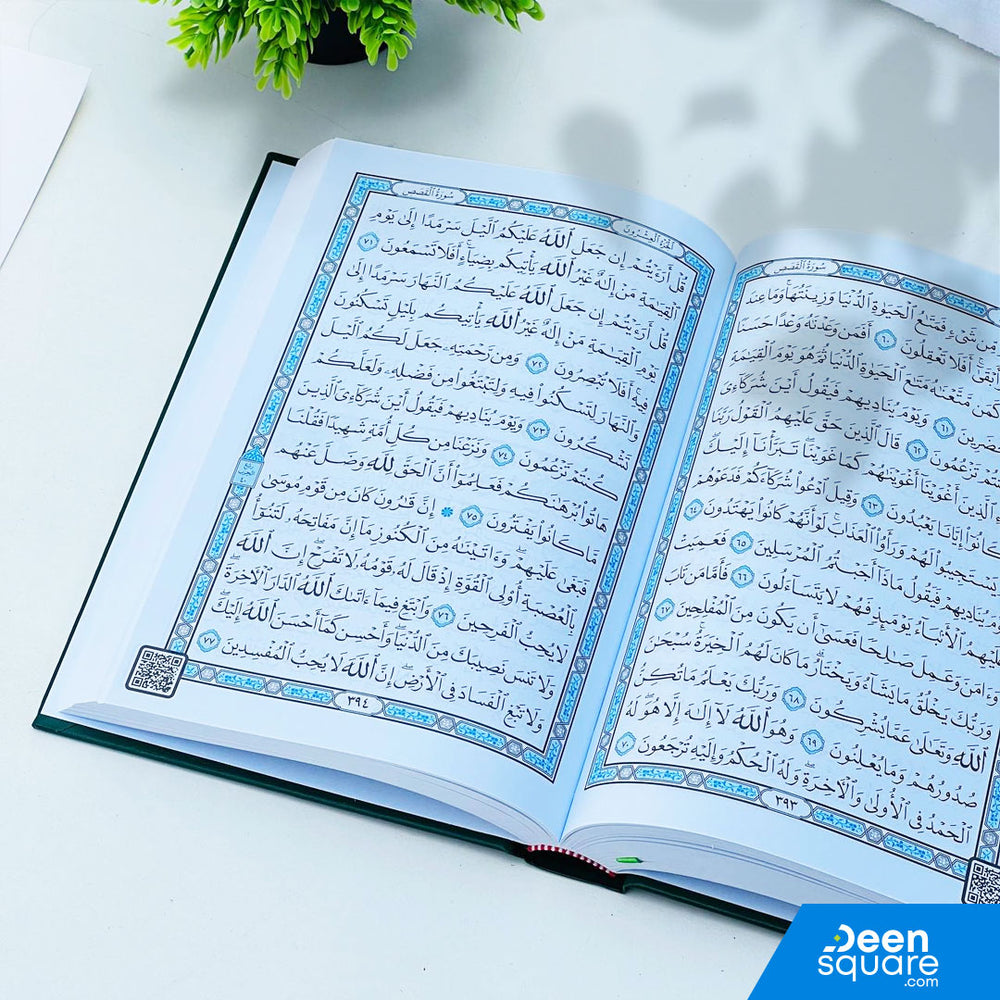 سُورَةُ القَصَصِ
مِّن شَىْءٍ فَمَتَـٰعُ ٱلْحَيَوٰةِ ٱلدُّنْيَا وَزِينَتُهَا ۚ وَمَا عِندَ
وَأَبْقَىٰٓ ۚ أَفَلَا تَعْقِلُونَ ٦٠ أَفَمَن وَعَدْنَـٰهُ وَعْدًا حَسَنًا
كَمَن مَّتَّعْنَـٰهُ مَتَـٰعَ ٱلْحَيَوٰةِ ٱلدُّنْيَا ثُمَّ هُوَ يَوْمَ ٱلْقِيَـٰمَةِ
٦١ وَيَوْمَ يُنَادِيهِمْ فَيَقُولُ أَيْنَ شُرَكَآءِىَ
تَزْعُمُونَ ٦٢ قَالَ ٱلَّذِينَ حَقَّ عَلَيْهِمُ ٱلْقَوْلُ رَبَّنَا
ٱلَّذِينَ أَغْوَيْنَآ أَغْوَيْنَـٰهُمْ كَمَا غَوَيْنَا ۖ تَبَرَّأْنَآ إِلَيْكَ
كَانُوٓا۟ إِيَّانَا يَعْبُدُونَ ٦٣ وَقِيلَ ٱدْعُوا۟ شُرَكَآءَكُمْ فَدَعَوْهُمْ
يَسْتَجِيبُوا۟ لَهُمْ وَرَأَوُا۟ ٱلْعَذَابَ ۚ لَوْ أَنَّهُمْ كَانُوا۟ يَهْتَدُونَ ٦٤
يُنَادِيهِمْ فَيَقُولُ مَاذَآ أَجَبْتُمُ ٱلْمُرْسَلِينَ ٦٥ فَعَمِيَتْ
عَلَيْهِمُ ٱلْأَنۢبَآءُ يَوْمَئِذٍ فَهُمْ لَا يَتَسَآءَلُونَ ٦٦ فَأَمَّا مَن تَابَ
وَءَامَنَ وَعَمِلَ صَـٰلِحًا فَعَسَىٰٓ أَن يَكُونَ مِنَ ٱلْمُفْلِحِينَ ٦٧
وَرَبُّكَ يَخْلُقُ مَا يَشَآءُ وَيَخْتَارُ ۗ مَا كَانَ لَهُمُ ٱلْخِيَرَةُ ۚ سُبْحَـٰنَ
ٱللَّهِ وَتَعَـٰلَىٰ عَمَّا يُشْرِكُونَ ٦٨ وَرَبُّكَ يَعْلَمُ مَا تُكِنُّ
صُدُورُهُمْ وَمَا يُعْلِنُونَ ٦٩ وَهُوَ ٱللَّهُ لَآ إِلَـٰهَ إِلَّا هُوَ ۖ لَهُ
ٱلْحَمْدُ فِى ٱلْأُولَىٰ وَٱلْـَٔاخِرَةِ ۖ وَلَهُ ٱلْحُكْمُ وَإِلَيْهِ تُرْجَعُونَ ٧٠
٣٩٣
الجُزْءُ العِشْرُونَ
سُورَةُ القَصَصِ
قُلْ أَرَءَيْتُمْ إِن جَعَلَ ٱللَّهُ عَلَيْكُمُ ٱلَّيْلَ سَرْمَدًا إِلَىٰ يَوْمِ
ٱلْقِيَـٰمَةِ مَنْ إِلَـٰهٌ غَيْرُ ٱللَّهِ يَأْتِيكُم بِضِيَآءٍ ۖ أَفَلَا تَسْمَعُونَ ٧١
قُلْ أَرَءَيْتُمْ إِن جَعَلَ ٱللَّهُ عَلَيْكُمُ ٱلنَّهَارَ سَرْمَدًا إِلَىٰ
يَوْمِ ٱلْقِيَـٰمَةِ مَنْ إِلَـٰهٌ غَيْرُ ٱللَّهِ يَأْتِيكُم بِلَيْلٍ تَسْكُنُونَ
فِيهِ ۖ أَفَلَا تُبْصِرُونَ ٧٢ وَمِن رَّحْمَتِهِۦ جَعَلَ لَكُمُ ٱلَّيْلَ
وَٱلنَّهَارَ لِتَسْكُنُوا۟ فِيهِ وَلِتَبْتَغُوا۟ مِن فَضْلِهِۦ وَلَعَلَّكُمْ
تَشْكُرُونَ ٧٣ وَيَوْمَ يُنَادِيهِمْ فَيَقُولُ أَيْنَ شُرَكَآءِىَ ٱلَّذِينَ
كُنتُمْ تَزْعُمُونَ ٧٤ وَنَزَعْنَا مِن كُلِّ أُمَّةٍ شَهِيدًا فَقُلْنَا
هَاتُوا۟ بُرْهَـٰنَكُمْ فَعَلِمُوٓا۟ أَنَّ ٱلْحَقَّ لِلَّهِ وَضَلَّ عَنْهُم
مَّا كَانُوا۟ يَفْتَرُونَ ٧٥ ۞ إِنَّ قَـٰرُونَ كَانَ مِن قَوْمِ مُوسَىٰ
فَبَغَىٰ عَلَيْهِمْ ۖ وَءَاتَيْنَـٰهُ مِنَ ٱلْكُنُوزِ مَآ إِنَّ مَفَاتِحَهُۥ لَتَنُوٓأُ
بِٱلْعُصْبَةِ أُو۟لِى ٱلْقُوَّةِ إِذْ قَالَ لَهُۥ قَوْمُهُۥ لَا تَفْرَحْ ۖ إِنَّ ٱللَّهَ
لَا يُحِبُّ ٱلْفَرِحِينَ ٧٦ وَٱبْتَغِ فِيمَآ ءَاتَىٰكَ ٱللَّهُ ٱلدَّارَ ٱلْـَٔاخِرَةَ ۖ
وَلَا تَنسَ نَصِيبَكَ مِنَ ٱلدُّنْيَا ۖ وَأَحْسِن كَمَآ أَحْسَنَ ٱللَّهُ إِلَيْكَ ۖ
وَلَا تَبْغِ ٱلْفَسَادَ فِى ٱلْأَرْضِ ۖ إِنَّ ٱللَّهَ لَا يُحِبُّ ٱلْمُفْسِدِينَ ٧٧
٣٩٤
Deen
square
.com